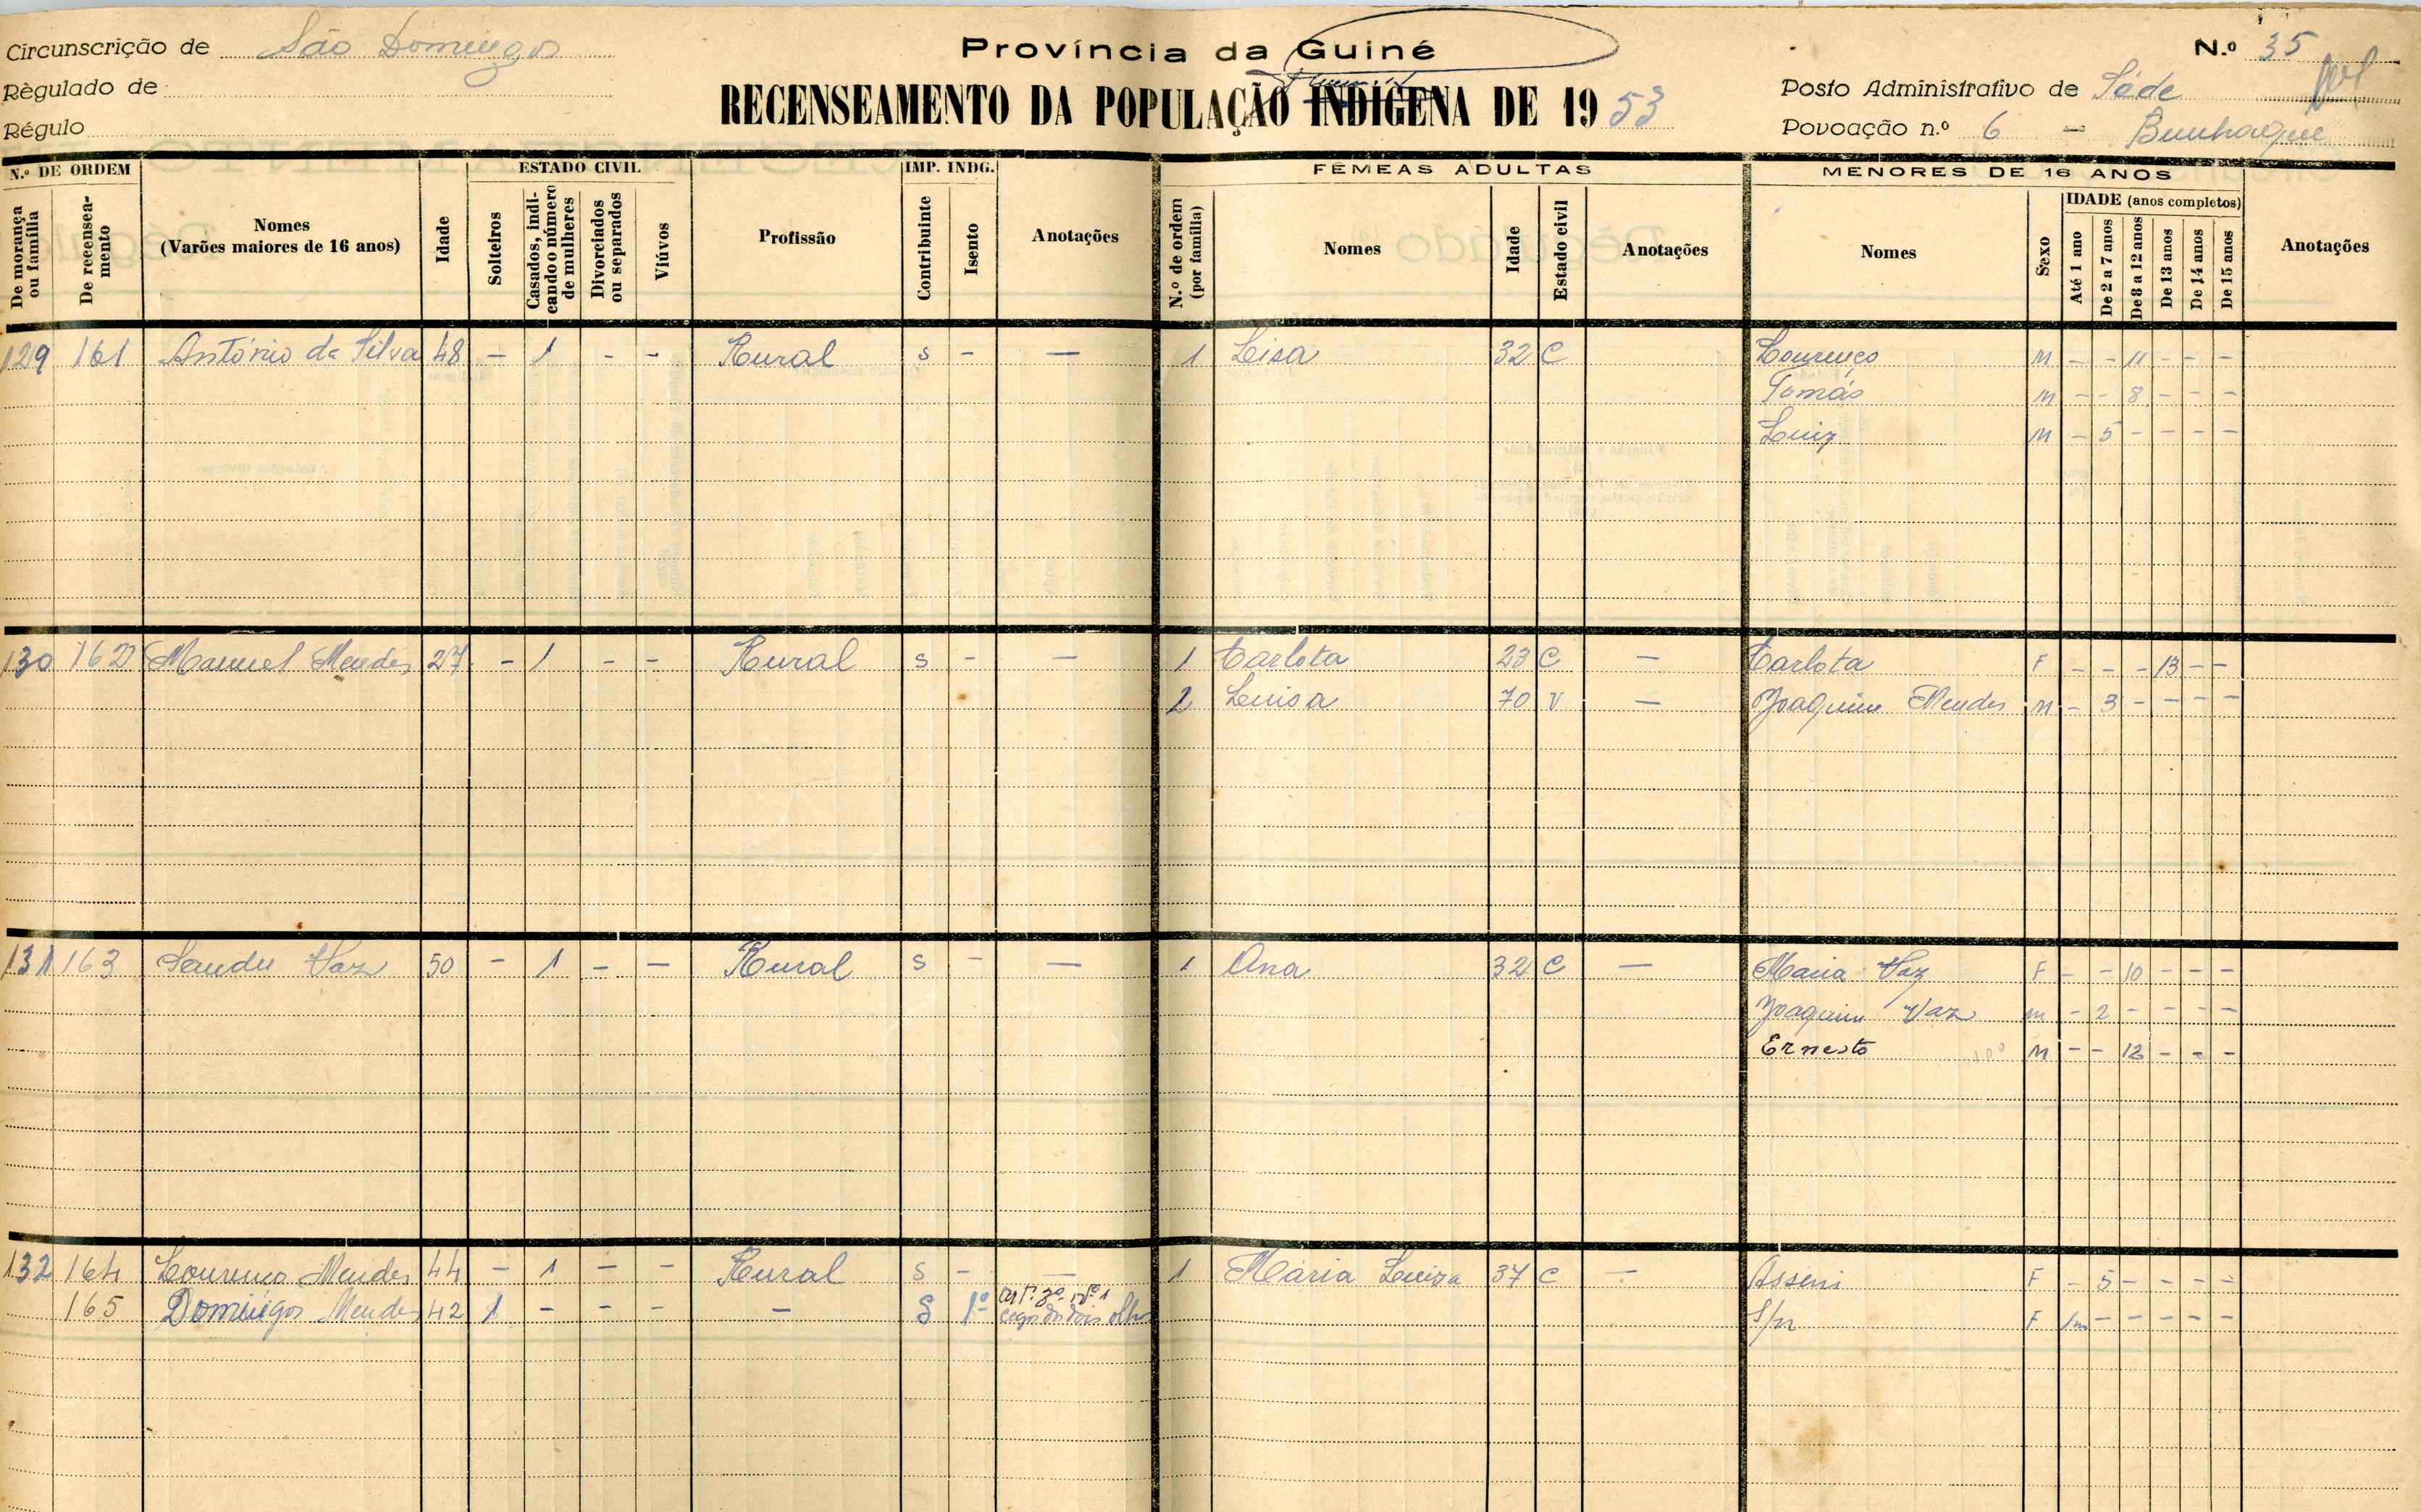 Circunscrição de São Domingos
Província da Guiné
N.º 35
Règulado de
RECENSEAMENTO DA POPULAÇÃO INDÍGENA DE 1953
Posto Administrativo de Séde
Régulo
Povoação n.º 6 –
N.º DE ORDEM
ESTADO CIVIL
IMP. INDG.
FÉMEAS ADULTAS
MENORES DE 16 ANOS
De morança ou família
De recenseamento
Nomes
(Varões maiores de 16 anos)
Idade
Solteiros
Casados, indicando o número de mulheres
Divorciados ou separados
Viúvos
Profissão
Contribuinte
Isento
Anotações
N.º de ordem (por família)
Nomes
Idade
Estado civil
Anotações
Nomes
Sexo
IDADE (anos completos)
Até 1 ano
De 2 a 7 anos
De 8 a 12 anos
De 13 anos
De 14 anos
De 15 anos
Anotações
129 161 António da Silva 48 – 1 – – Rural s – — 1 Lisa 32 C Lourenço M – – 11 – – –
Tomás M – – 8 – – –
Luiz M – 5 – – – –
130 162 Manuel Mendes 27 – 1 – – Rural s – — 1 Carlota 23 C — Carlota F – – – 13 – –
2 Luisa 70 V — Joaquim Mendes M – 3 – – – –
131 163 Sandu Vaz 50 – 1 – – Rural s – — 1 Ana 32 C — Maria Vaz F – – 10 – – –
Joaquim Vaz M – 2 – – – –
Ernesto M – – 12 – – –
132 164 Lourenço Mendes 44 – 1 – – Rural s – — 1 Maria Luiza 37 C — Asseni F – 5 – – – –
165 Domingos Mendes 42 1 – – – – S 1º artº. 3º. nº. 1 S/n F 1m – – – – –
cego dos dois olhos